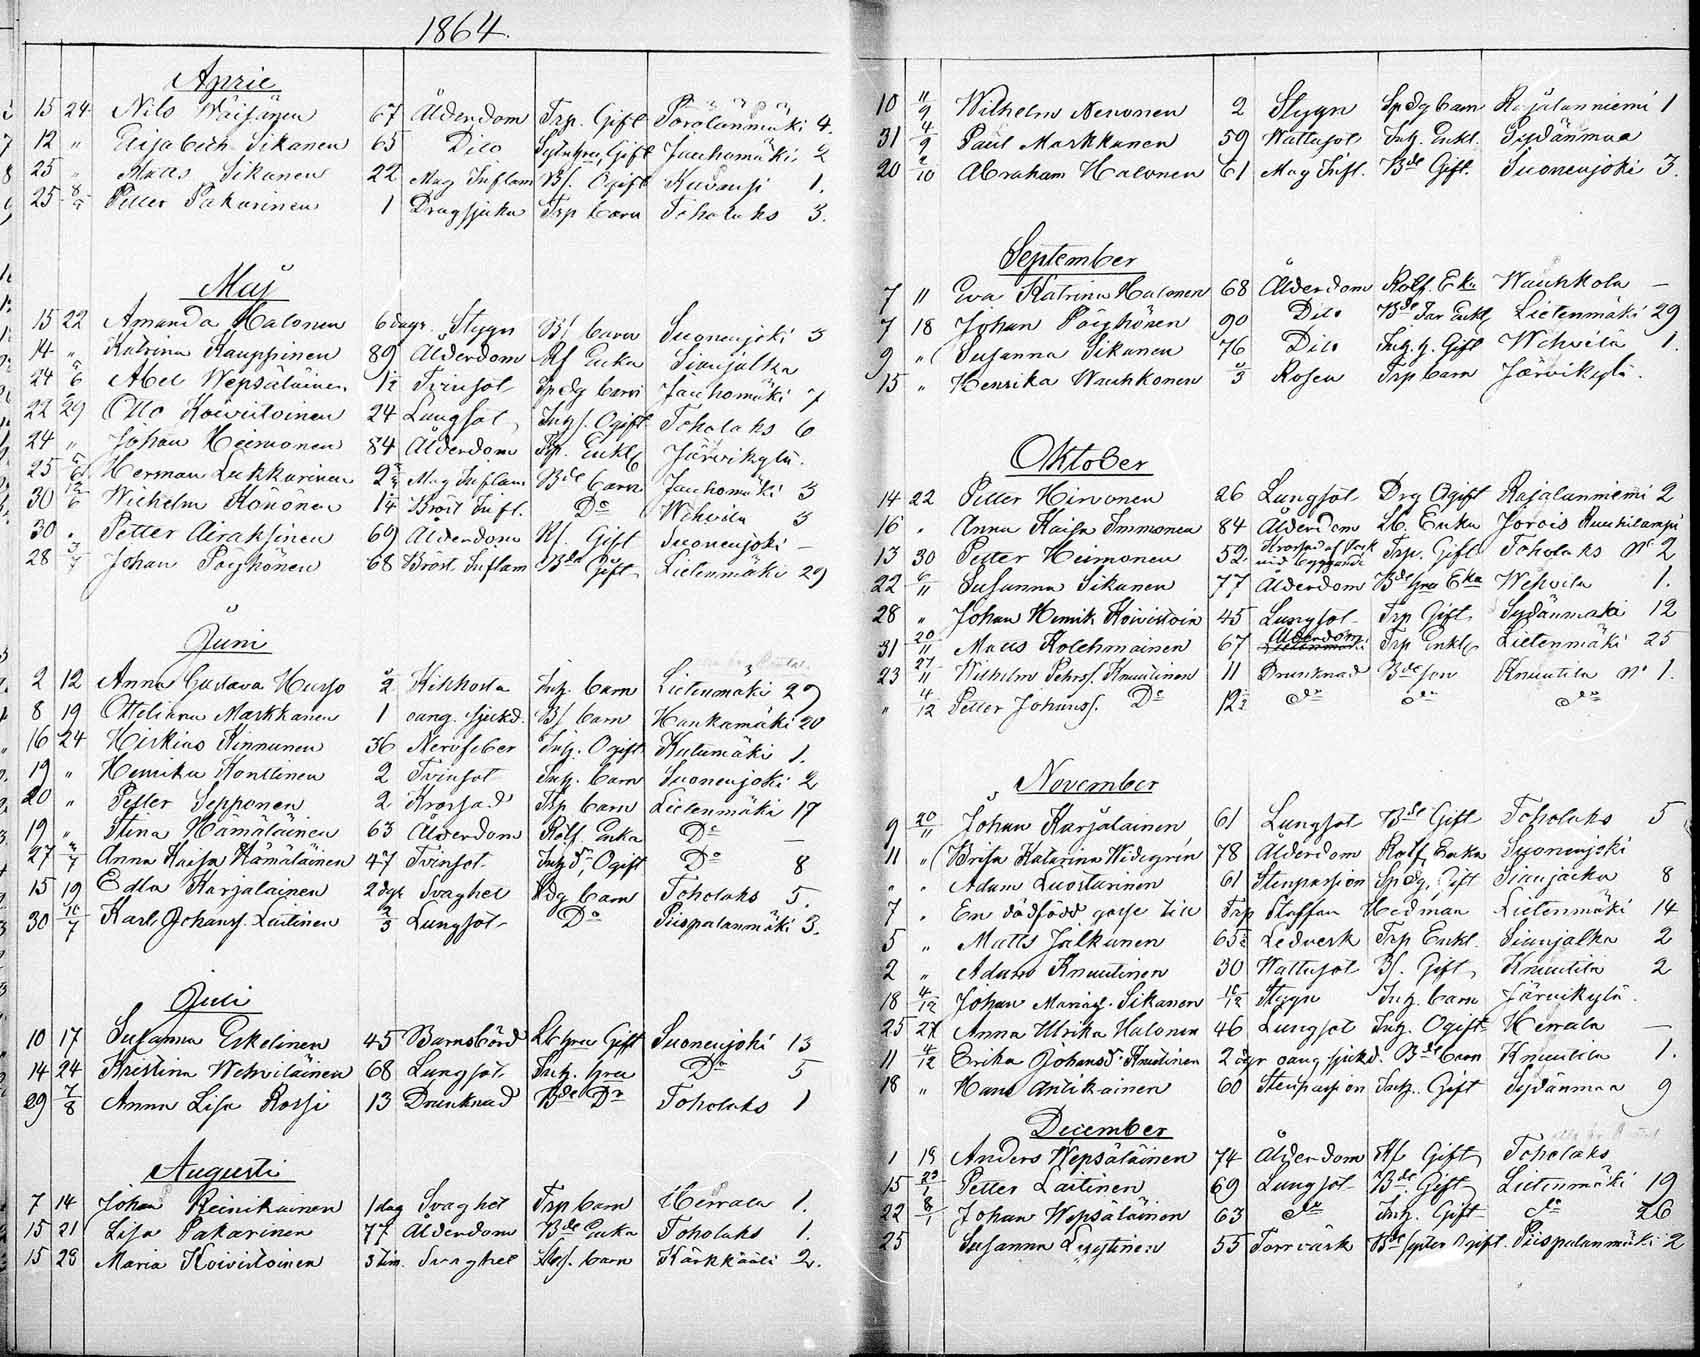 1864.
April
15 24 Nils Wäisänen 67 Ålderdom Trp. Gift Pörölänmäki 4.
12 " Elisabeth Sikanen 65 Dito Gift Jauhomäki 2
25 " Matts Sikanen 22 Mag Inflam Bs. Ogift Kuvansi 1.
25 8/5 Petter Pakarinen 1 Dragsjuka Trp barn Toholaks 3.
Maj
15 22 Amanda Halonen 6 dagr Stygn Bs barn Suonenjoki 3
14 " Katrina Kauppinen 89 Ålderdom Rf Enka Sianjalka
24 5/6 Abel Wepsäläinen 1 1/2 Tvinsot Spdg barn Jauhomäki 7
22 29 Otto Koivistoinen 24 Lungsot Inhs. Ogift Toholaks 6
24 " Johan Heimonen 84 Ålderdom Trp. Enkl Järvikylä.
25 5/6 Herman Lukkarinen 2 Mag Inflam Bde barn Jauhomäki 3
30 12/6 Wilhelm Könönen 1 1/4 Bröst Infl. Do Wehvilä 3
30 " Petter Airaksinen 69 Ålderdom Rf. Gift Suonenjoki –
28 3/7 Johan Pöyhönen 68 Bröst Inflam Bde Gift Lietenmäki 29
Juni
2 12 Anna Gustava Husso 1/2 Kikhosta Inh. barn Lietenmäki 29
8 19 Otteliana Markkanen 1 oang. sjukd. Bs barn Haukamäki 20
16 24 Hiskias Rinnunen 36 Nervfeber Inh. Ogift Kutumäki 1.
19 " Henrika Konttinen 2 Tvinsot Inh. barn Suonenjoki 2
20 " Petter Sepponen 2 Krossad Trp barn Lietenmäki 17
19 " Stina Hämäläinen 63 Ålderdom Rotf Enka Do –
27 3/7 Anna Kaisa Hämäläinen 47 Tvinsot Inh dr, Ogift Do 8
15 19 Edla Karjalainen 2 dgr Svaghet Spdg barn Toholaks 5.
30 10/7 Karl Johanss. Laitinen 2/3 Lungsot Do Piispalanmäki 3.
Juli
10 17 Susanna Eskelinen 45 Barnsbörd Lb hru Gift Suonenjoki 13
14 24 Kristina Wehviläinen 68 Lungsot Inh. hru Do 5
29 7/8 Anna Lisa Rossi 13 Drunknad Bde Dr Toholaks 1
Augusti
7 14 Johan Reinikainen 1 dag Svaghet Trp barn Herrala 1.
15 21 Lisa Pakarinen 77 Ålderdom Bde Enka Toholaks 1.
15 28 Maria Koivistoinen 3 tim. Svaghet barn Kärkkääli 2.
10 11/9 Wilhelm Nenonen 2 Stygn Spdg barn Rajalanniemi 1
31 4/9 Paul Markkanen 59 Wattusot Inh. Enkl. Sydänmaa
20 2/10 Abraham Halonen 61 Mag Infl. Bde Gift. Suonenjoki 3.
September
7 11 Eva Katrina Halonen 68 Ålderdom Rotf. Eka Wauhkola –
7 18 Johan Pöyhönen 90 Dito Bde Far Enkl Lietenmäki 29
9 " Susanna Sikanen 76 Dito Inh. h. Gift Wehvilä 1.
15 " Henrika Wauhkonen Rosen Trp barn Järvikylä.
Oktober
14 22 Petter Hirvonen 26 Lungsot Drg Ogift Rajalanniemi 2
16 " Anna Kaisa Immonen 84 Ålderdom Lb. Enka Jorois Ruuhilampi
13 30 Petter Heimonen 52. Krossad af Stock vid byggande Trp. Gift Toholaks No 2
22 6/11 Susanna Sikanen 77 Ålderdom Bde hru Eka Wehvilä 1.
28 " Johan Henrik Koivistoin 45 Lungsot Trp Gift Sydänmaa 12
31 20/11 Matts Kolehmainen 67 Ålderdom Trp Enkl Lietenmäki 25
23 27/11 Wilhelm Pehrss. Knuutinen 11 Drunknad Bde son Knuutila No 1.
" 4/12 Petter Johanss. Do 12 1/2 do do do
November
9 20/11 Johan Karjalainen 61 Lungsot Bde Gift Toholaks 5
11 " Brita Katarina Widegrén 78 Ålderdom Rotf Enka Suonenjoki
" " Adam Luostarinen 61 Stenpassion Spdg, Gift Sianjalka 8
7 " En dödfödd gosse till Trp Staffan Hedman Lietenmäki 14
5 " Matts Jalkanen 65 1/2 Ledverk Trp Enkl. Sianjalka 2
2 " Adam Knuutinen 30 Wattusot Bs. Gift Knuutila 2
18 4/12 Johan Mariæs. Sikanen 10/12 Stygn Inh. barn Järvikylä.
25 27 Anna Ulrika Halonen 46 Lungsot Inh. Ogift Herrala –
11 4/12 Erika Johansd. Knuutinen 2 dgr oang sjukd. Bde barn Knuutila 1.
18 " Hans Antikainen 60 Stenpassion Inh. Gift Sydänmaa 9
December
1 18 Anders Wepsäläinen 74 Ålderdom Rf Gift Toholaks
15 29/1 Petter Laitinen 69 Lungsot Bde. Gift Lietenmäki 19
22 8/1 Johan Wepsäläinen 63 do Inh. Gift do 26
25 Susanna 55 Torrvärk Bde syster Ogift. Piispalanmäki 2